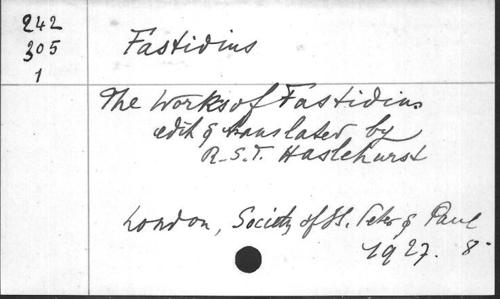 242
305
1
Fastidius
The Works of Fastidius
edit & translated by
R.S.T. Haslehurst
London, Society of St. Peter & Paul
1927. 8°